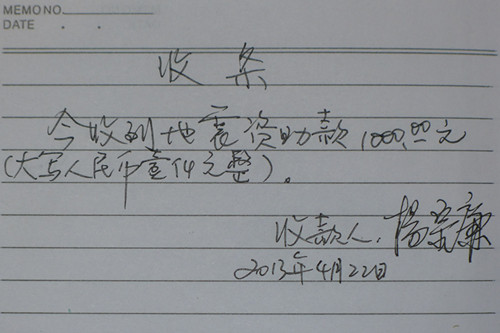 MEMO NO.
DATE . .
收条
今收到地震资助款1000.00元
(大写人民币壹仟元整)。
收款人:杨宗廉
2013年4月22日